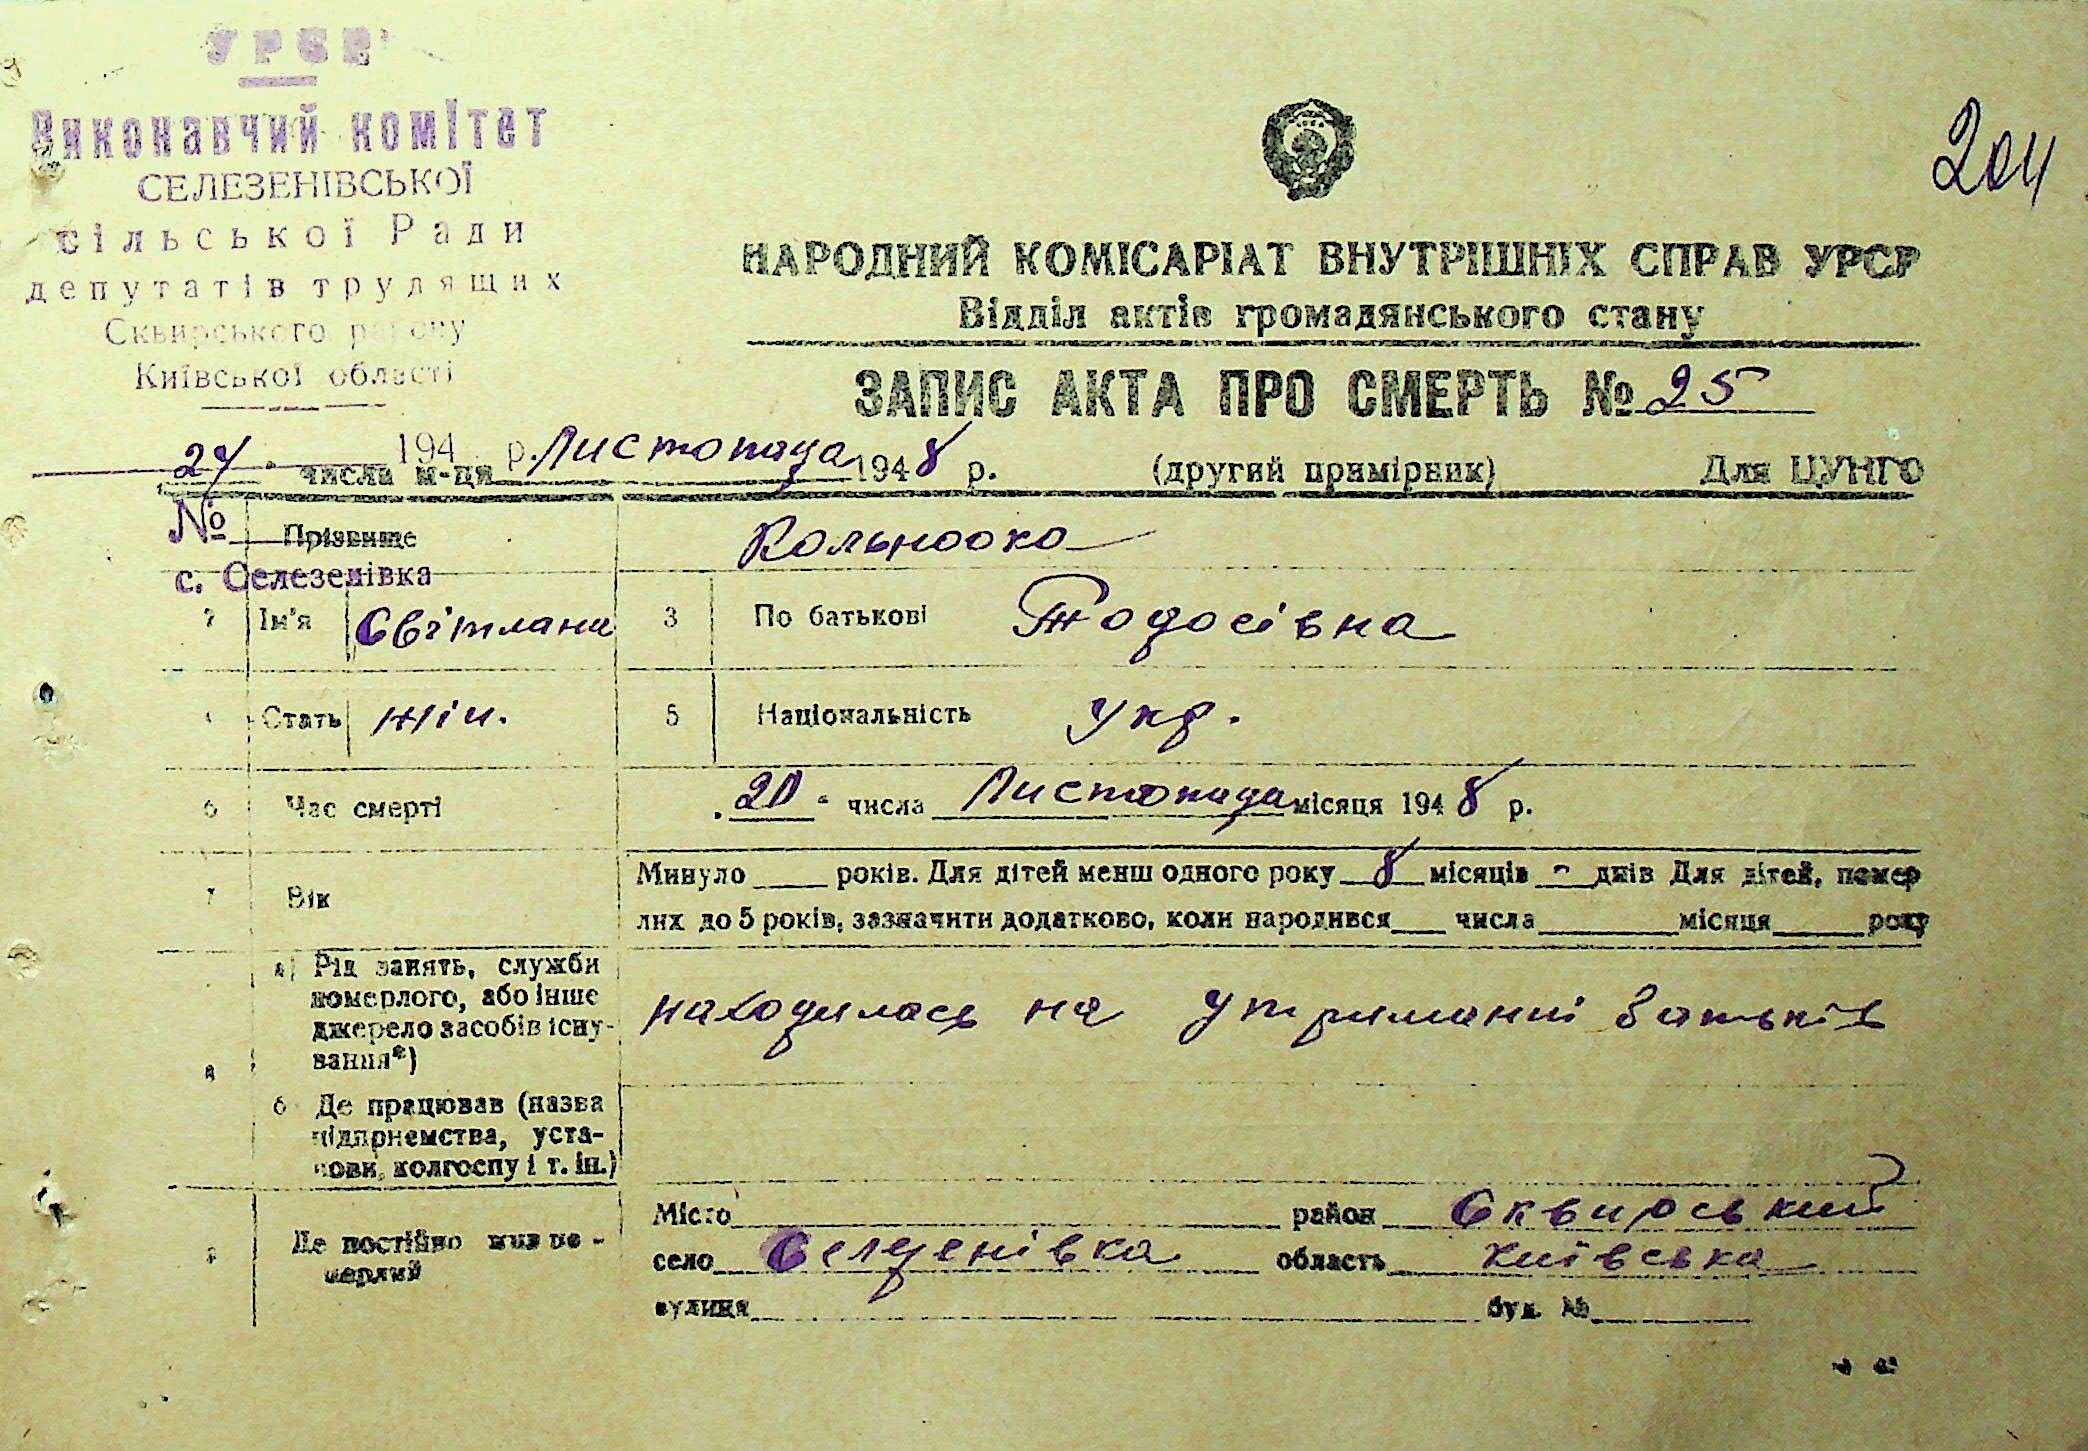 УРСР
Виконавчий комітет
СЕЛЕЗЕНІВСЬКОЇ
сільської Ради
депутатів трудящих
Сквирського району
Київської області
204
НАРОДНИЙ КОМІСАРІАТ ВНУТРІШНІХ СПРАВ УРСР
Відділ актів громадянського стану
ЗАПИС АКТА ПРО СМЕРТЬ № 25
194 р.
24 числа м-ця Листопада 1948 р. (другий примірник) Для ЦУНГО
№ Прізвище Кольноока
с. Селезенівка
2 Ім'я Світлана 3 По батькові Тодосівна
Стать жін. 5 Національність Укр.
6 Час смерті 20 числа Листопада місяця 1948 р.
7 Вік Минуло ___ років. Для дітей менш одного року 8 місяців - днів Для дітей, помер
лих до 5 років, зазначити додатково, коли народився ___ числа ___ місяця ___ року
а) Рід занять, служби
померлого, або інше
джерело засобів існу-
вання*)
находилась на утриманні батьків
8
б Де працював (назва
підприємства, уста-
нови, колгоспу і т. ін.)
Місто ___ район Сквирський
Де постійно жив по-
мерлий
село Селезенівка область Київська
вулиця ___ буд. № ___